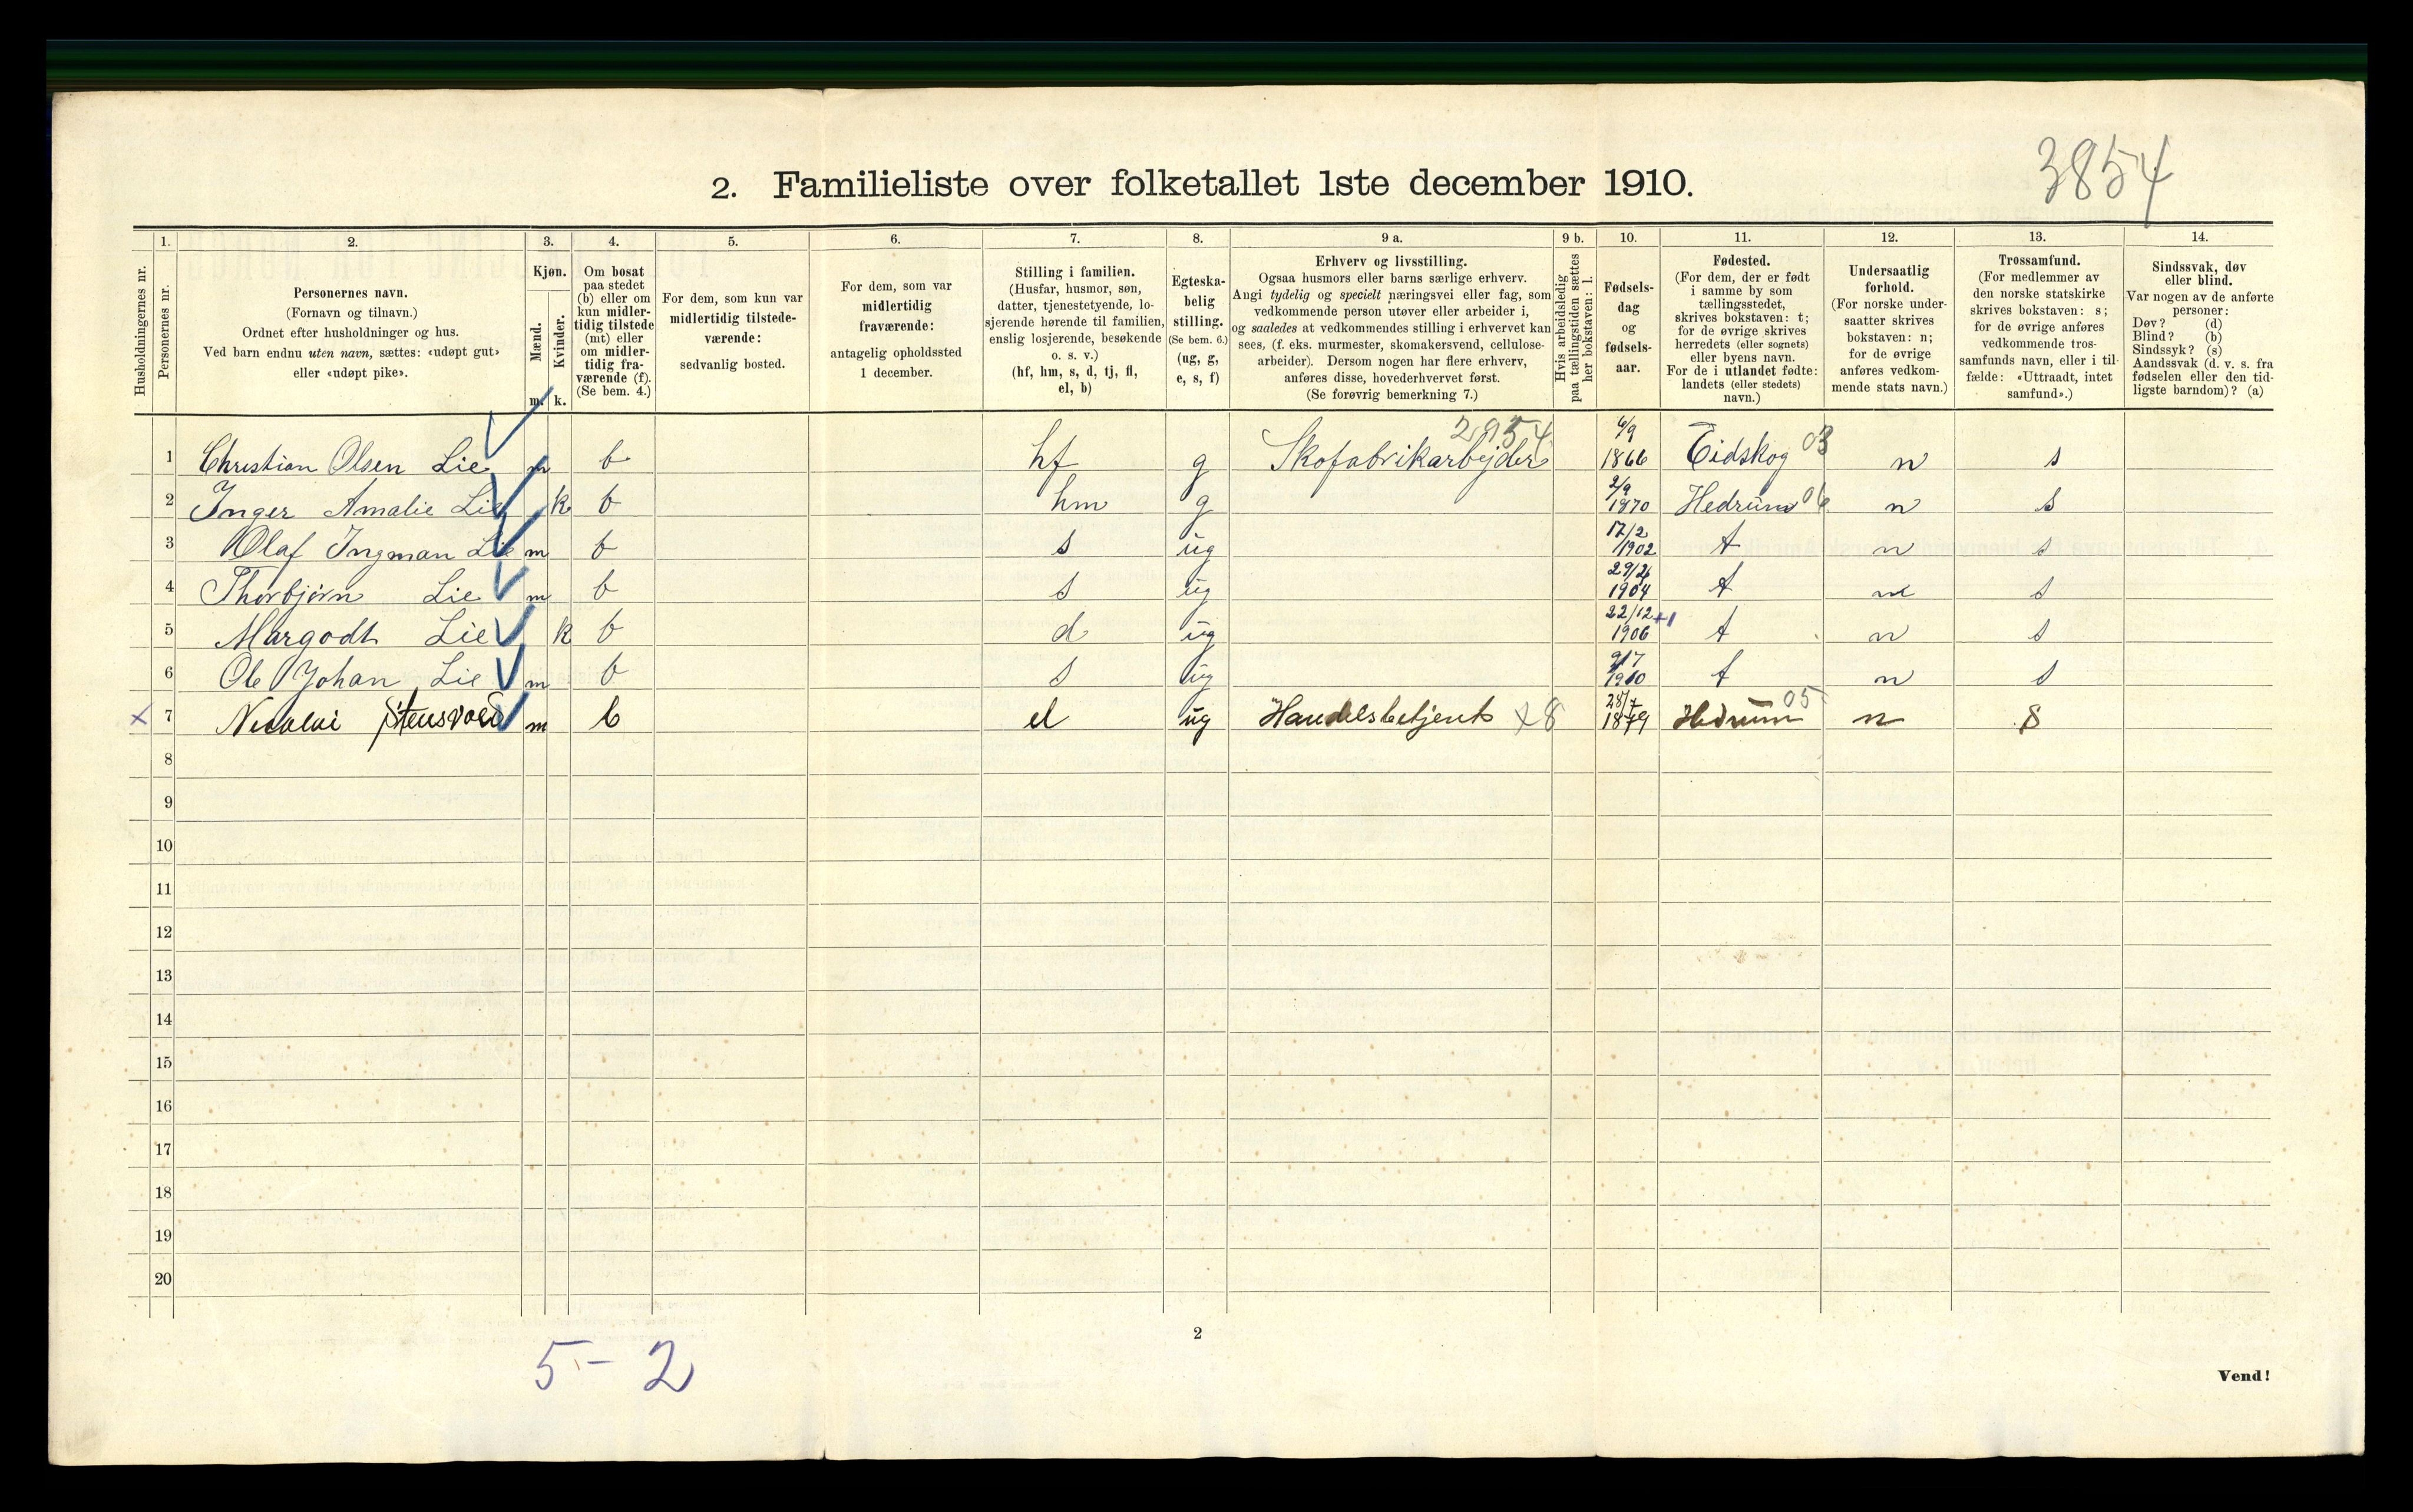 3854
2. Familieliste over folketallet 1ste december 1910.
1. 2. 3. 4. 5. 6. 7. 8. 9 a. 9 b. 10. 11. 12. 13. 14.
Husholdningernes nr.
Personernes nr.
Personernes navn.
(Fornavn og tilnavn.)
Ordnet efter husholdninger og hus.
Ved barn endnu uten navn, sættes: «udøpt gut»
eller «udøpt pike».
Kjøn.
Mænd.
Kvinder.
m. k.
Om bosat
paa stedet
(b) eller om
kun midler-
tidig tilstede
(mt) eller
om midler-
tidig fra-
værende (f).
(Se bem. 4.)
For dem, som kun var
midlertidig tilstede-
værende:
sedvanlig bosted.
For dem, som var
midlertidig
fraværende:
antagelig opholdssted
1 december.
Stilling i familien.
(Husfar, husmor, søn,
datter, tjenestetyende, lo-
sjerende hørende til familien,
enslig losjerende, besøkende
o. s. v.)
(hf, hm, s, d, tj, fl,
el, b)
Egteska-
belig
stilling.
(Se bem. 6.)
(ug, g,
e, s, f)
Erhverv og livsstilling.
Ogsaa husmors eller barns særlige erhverv.
Angi tydelig og specielt næringsvei eller fag, som
vedkommende person utøver eller arbeider i,
og saaledes at vedkommendes stilling i erhvervet kan
sees, (f. eks. murmester, skomakersvend, cellulose-
arbeider). Dersom nogen har flere erhverv,
anføres disse, hovederhvervet først.
(Se forøvrig bemerkning 7.)
Hvis arbeidsledig
paa tællingstiden sættes
her bokstaven: l.
Fødsels-
dag
og
fødsels-
aar.
Fødested.
(For dem, der er født
i samme by som
tællingsstedet,
skrives bokstaven: t;
for de øvrige skrives
herredets (eller sognets)
eller byens navn.
For de i utlandet fødte:
landets (eller stedets)
navn.)
Undersaatlig
forhold.
(For norske under-
saatter skrives
bokstaven: n;
for de øvrige
anføres vedkom-
mende stats navn.)
Trossamfund.
(For medlemmer av
den norske statskirke
skrives bokstaven: s;
for de øvrige anføres
vedkommende tros-
samfunds navn, eller i til-
fælde: «Uttraadt, intet
samfund».)
Sindssvak, døv
eller blind.
Var nogen av de anførte
personer:
Døv? (d)
Blind? (b)
Sindssyk? (s)
Aandssvak (d. v. s. fra
fødselen eller den tid-
ligste barndom)? (a)
1 Christian Olsen Lie m b hf g Skofabrikarbejder 1866 Eidskog 03 n s
2 Inger Amalie Lie k b hm g 2/9 1870 Hedrum 06 n s
3 Olaf Ingman Lie m b s ug 17/2 1902 t n s
4 Thorbjørn Lie m b s ug 29/2 1904 t n s
5 Margodt Lie k b d ug 22/12 1906 t n s
6 Ole Johan Lie m b s ug 9/7 1910 t n s
x 7 Nicolai Stensvold m b el ug Handelsbetjent x8 28/7 1879 Hedrum 05 n s
8
9
10
11
12
13
14
15
16
17
18
19
20
2
5 - 2
Vend!